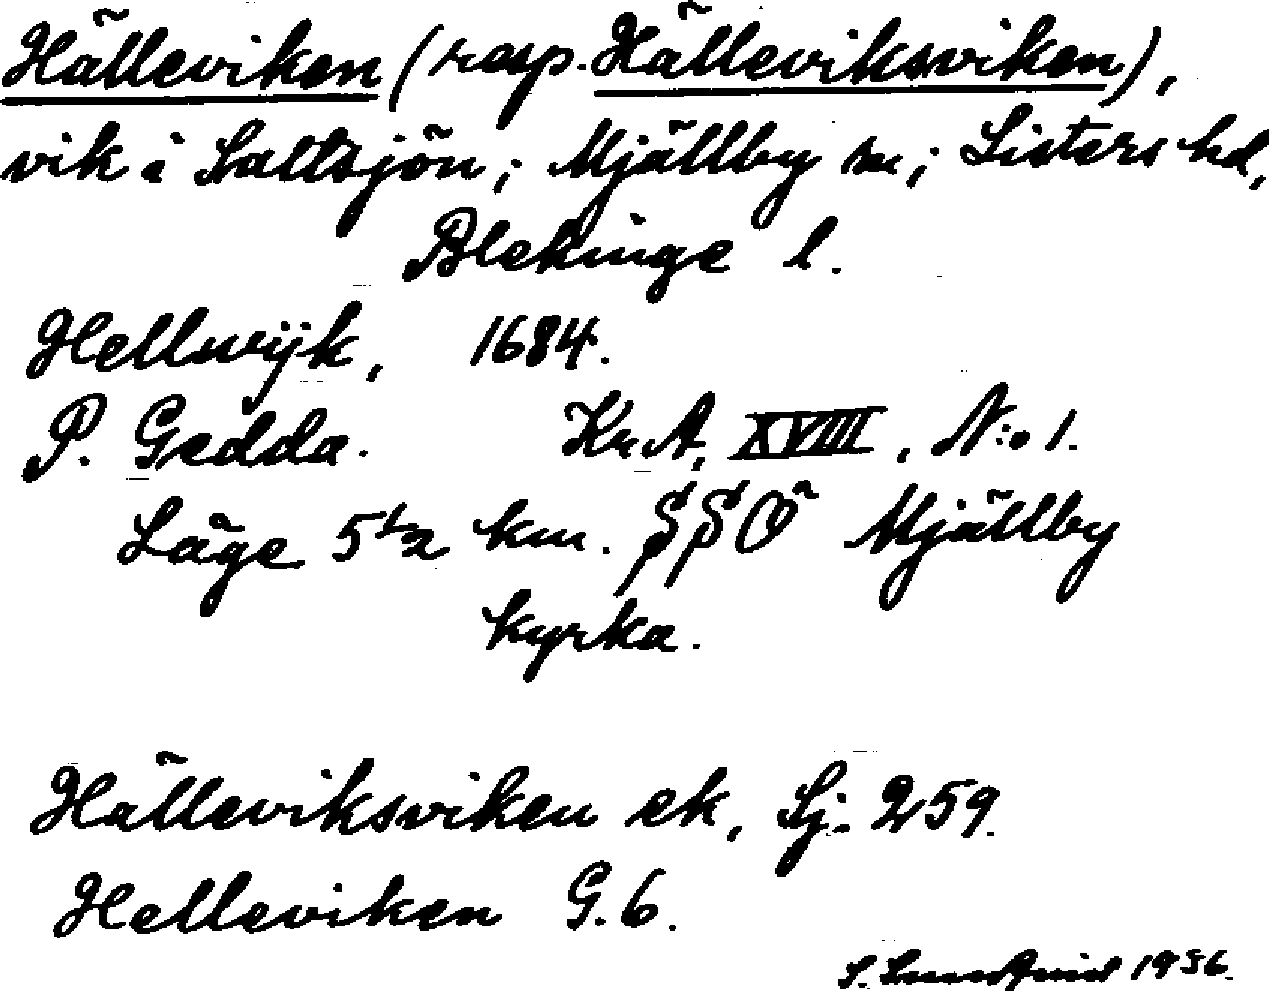 Hälleviken (resp. Hälleviksviken),
vik i Saltsjön; Mjällby sn; Listers hd,
Blekinge l.
Hellwijk, 1684.
P. Gedda. Kr.A. XVIII, N:o 1.
Läge 5 1/2 km. SSO Mjällby
kyrka.
Hälleviksviken ek, Sj. 259.
Helleviken G.6.
S. Lundqvist 1956